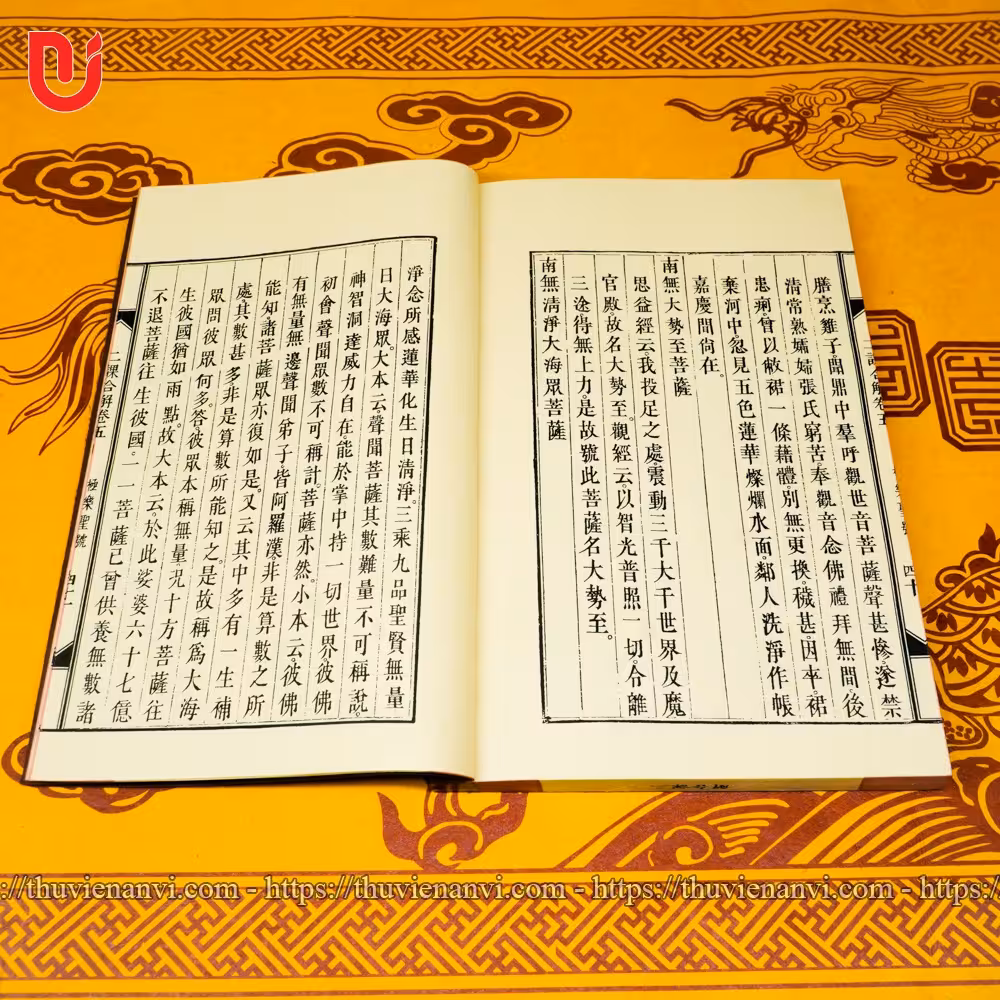 膳烹雞子鼎中羣呼觀世音菩薩聲甚慘遂禁
清常熟孀婦張氏窮苦奉觀音念佛禮拜無間後
患痢曾以敝裙一條藉體別無更換穢甚因卒裙
棄河中忽見五色蓮華燦爛水面鄰人洗淨作帳
嘉慶間尚在。
南無大勢至菩薩
思益經云我投足之處震動三千大千世界及魔
官殿故名大勢至。觀經云以智光普照一切令離
三途得無上力是故號此菩薩名大勢至。
南無清淨大海眾菩薩
淨念所感蓮華化生日清淨。三乘九品聖賢無量
日大海眾。大本云聲聞菩薩其數難量不可稱說。
神智洞達威力自在能於掌中持一切世界彼佛
初會聲聞眾數不可稱計。菩薩亦然。小本云彼佛
有無量無邊聲聞弟子皆阿羅漢非是算數之所
能知諸菩薩眾亦復如是。又云其中多有一生補
處其數甚多非是算數所能知之。是故稱爲大海
眾問彼眾何多。答彼眾本稱無量況十方菩薩往
生彼國猶如雨點。故大本云於此娑婆六十七億
不退菩薩往生彼國。一一菩薩已曾供養無數諸
二課合解卷五
極樂聖號
四十一
二課合解卷五
四十
https://thuvienanvi.com - https://thuvienanvi.com - https://thuvienanvi.com